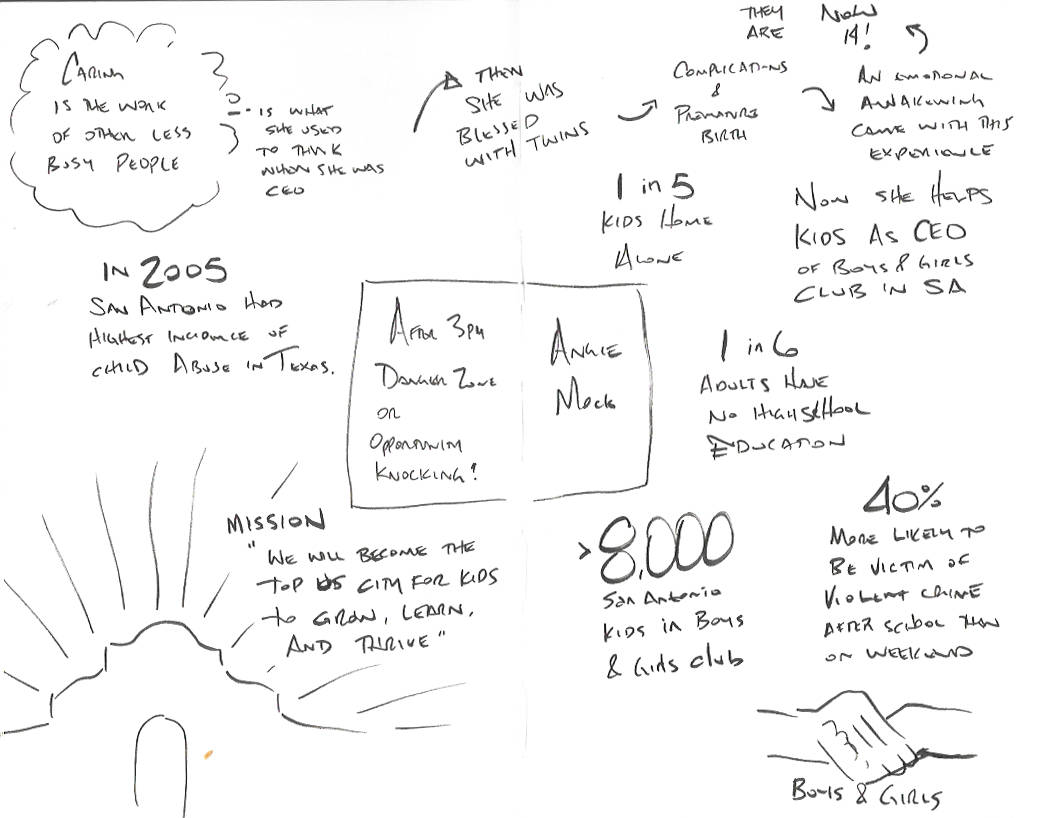 CARING
IS THE WORK
OF OTHER LESS
BUSY PEOPLE
IS WHAT
SHE USED
TO THINK
WHEN SHE WAS
CEO
THEN
SHE WAS
BLESSED
WITH TWINS
COMPLICATIONS
&
PREMATURE
BIRTH
THEY
ARE
NOW
14!
AN EMOTIONAL
AWAKENING
CAME WITH THIS
EXPERIENCE
NOW SHE HELPS
KIDS AS CEO
OF BOYS & GIRLS
CLUB IN SA
1 in 5
KIDS HOME
ALONE
IN 2005
SAN ANTONIO HAD
HIGHEST INCIDENCE OF
CHILD ABUSE IN TEXAS.
AFTER 3PM
DANGER ZONE
OR
OPPORTUNITY
KNOCKING!
ANGIE
MOCK
1 in 6
ADULTS HAVE
NO HIGHSCHOOL
EDUCATION
MISSION
"WE WILL BECOME THE
TOP US CITY FOR KIDS
TO GROW, LEARN,
AND THRIVE"
>8,000
San Antonio
KIDS in Boys
& Girls club
40%
MORE LIKELY TO
BE VICTIM OF
VIOLENT CRIME
AFTER SCHOOL THAN
ON WEEKEND
BOYS & GIRLS